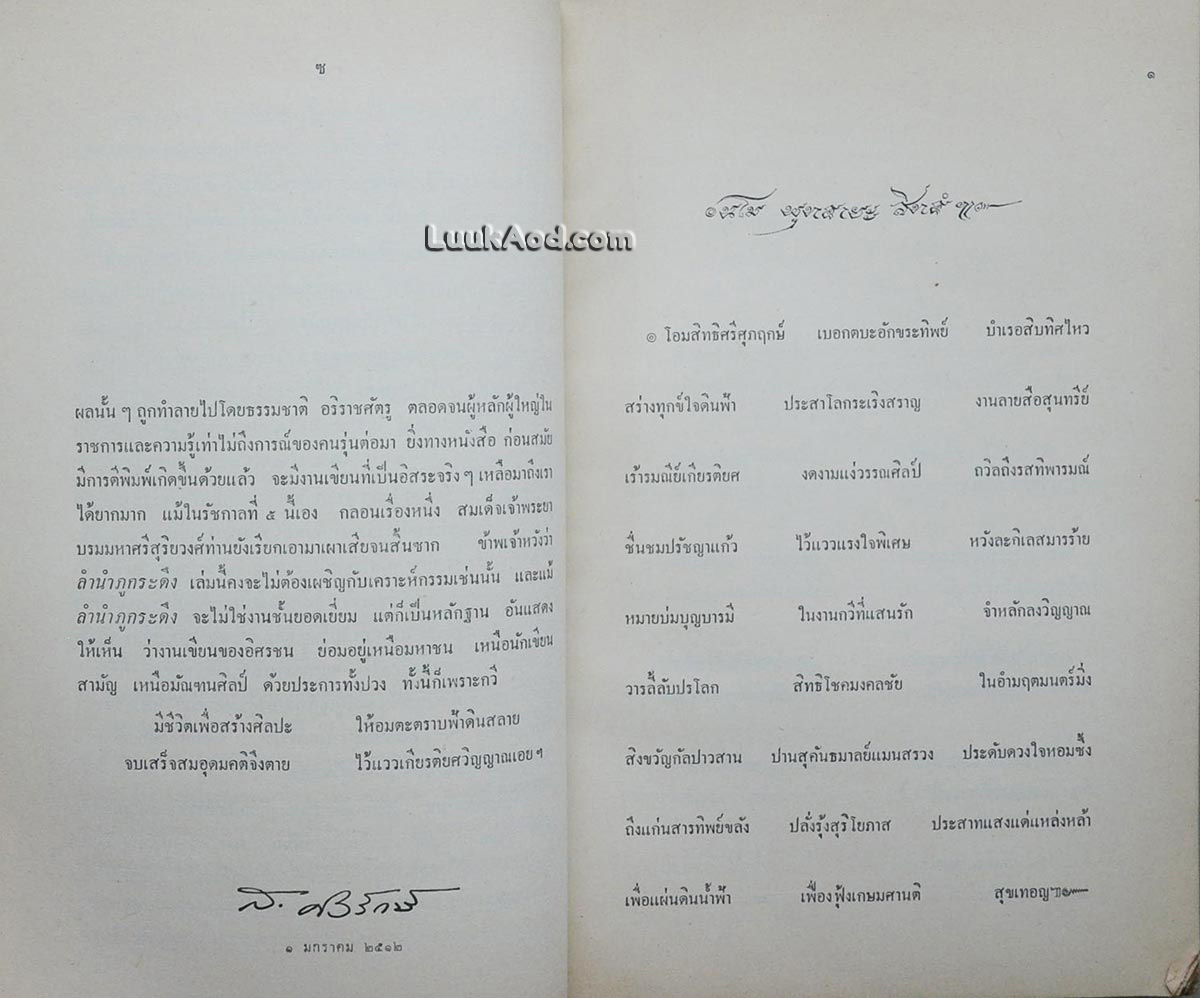 ซ
ผลนั้น ๆ ถูกทำลายไปโดยธรรมชาติ อริราชศัตรู ตลอดจนผู้หลักผู้ใหญ่ใน
ราชการและความรู้เท่าไม่ถึงการณ์ของคนรุ่นต่อมา ยิ่งทางหนังสือ ก่อนสมัย
มีการตีพิมพ์เกิดขึ้นด้วยแล้ว จะมีงานเขียนที่เป็นอิสระจริง ๆ เหลือมาถึงเรา
ได้ยากมาก แม้ในรัชกาลที่ ๕ นี้เอง กลอนเรื่องหนึ่ง สมเด็จเจ้าพระยา
บรมมหาศรีสุริยวงศ์ท่านยังเรียกเอามาเผาเสียจนสิ้นซาก ข้าพเจ้าหวังว่า
ลำนำภูกระดึง เล่มนี้คงจะไม่ต้องเผชิญกับเคราะห์กรรมเช่นนั้น และแม้
ลำนำภูกระดึง จะไม่ใช่งานชั้นยอดเยี่ยม แต่ก็เป็นหลักฐาน อันแสดง
ให้เห็น ว่างานเขียนของอิศรชน ย่อมอยู่เหนือมหาชน เหนือนักเขียน
สามัญ เหนือมัณฑนศิลป์ ด้วยประการทั้งปวง ทั้งนี้ก็เพราะกวี
มีชีวิตเพื่อสร้างศิลปะ ให้อมตะตราบฟ้าดินสลาย
จบเสร็จสมอุดมคติจึงตาย ไว้แววเกียรติยศวิญญาณเอย ฯ
ส. ศิวรักษ์
๑ มกราคม ๒๕๑๒
LuukAod.com
๑
๏ โอมสิทธิศรีศุภฤกษ์ เบอกตบะอักขระทิพย์ บำเรอสิบทิศไหว
สร่างทุกข์ใจดินฟ้า ประสาโลกระเริงสราญ งานลายสือสุนทรีย์
เร้ารมณีย์เกียรติยศ งดงามแง่วรรณศิลป์ ถวิลถึงรสทิพารมณ์
ชื่นชมปรัชญาแก้ว ไว้แววแรงใจพิเศษ หวังละกิเลสมารร้าย
หมายบ่มบุญบารมี ในงานกวีที่แสนรัก จำหลักลงวิญญาณ
วารลี้ลับปรโลก สิทธิโชคมงคลชัย ในอำมฤตมนตร์มิ่ง
สิงขวัญกัลปาวสาน ปานสุคันธมาลย์แมนสรวง ประดับดวงใจหอมซึ้ง
ถึงแก่นสารทิพย์ขลัง ปลั่งรุ้งสุริโยภาส ประสาทแสงแด่แหล่งหล้า
เพื่อแผ่นดินน้ำฟ้า เฟื่องฟุ้งเกษมศานติ สุขเทอญ